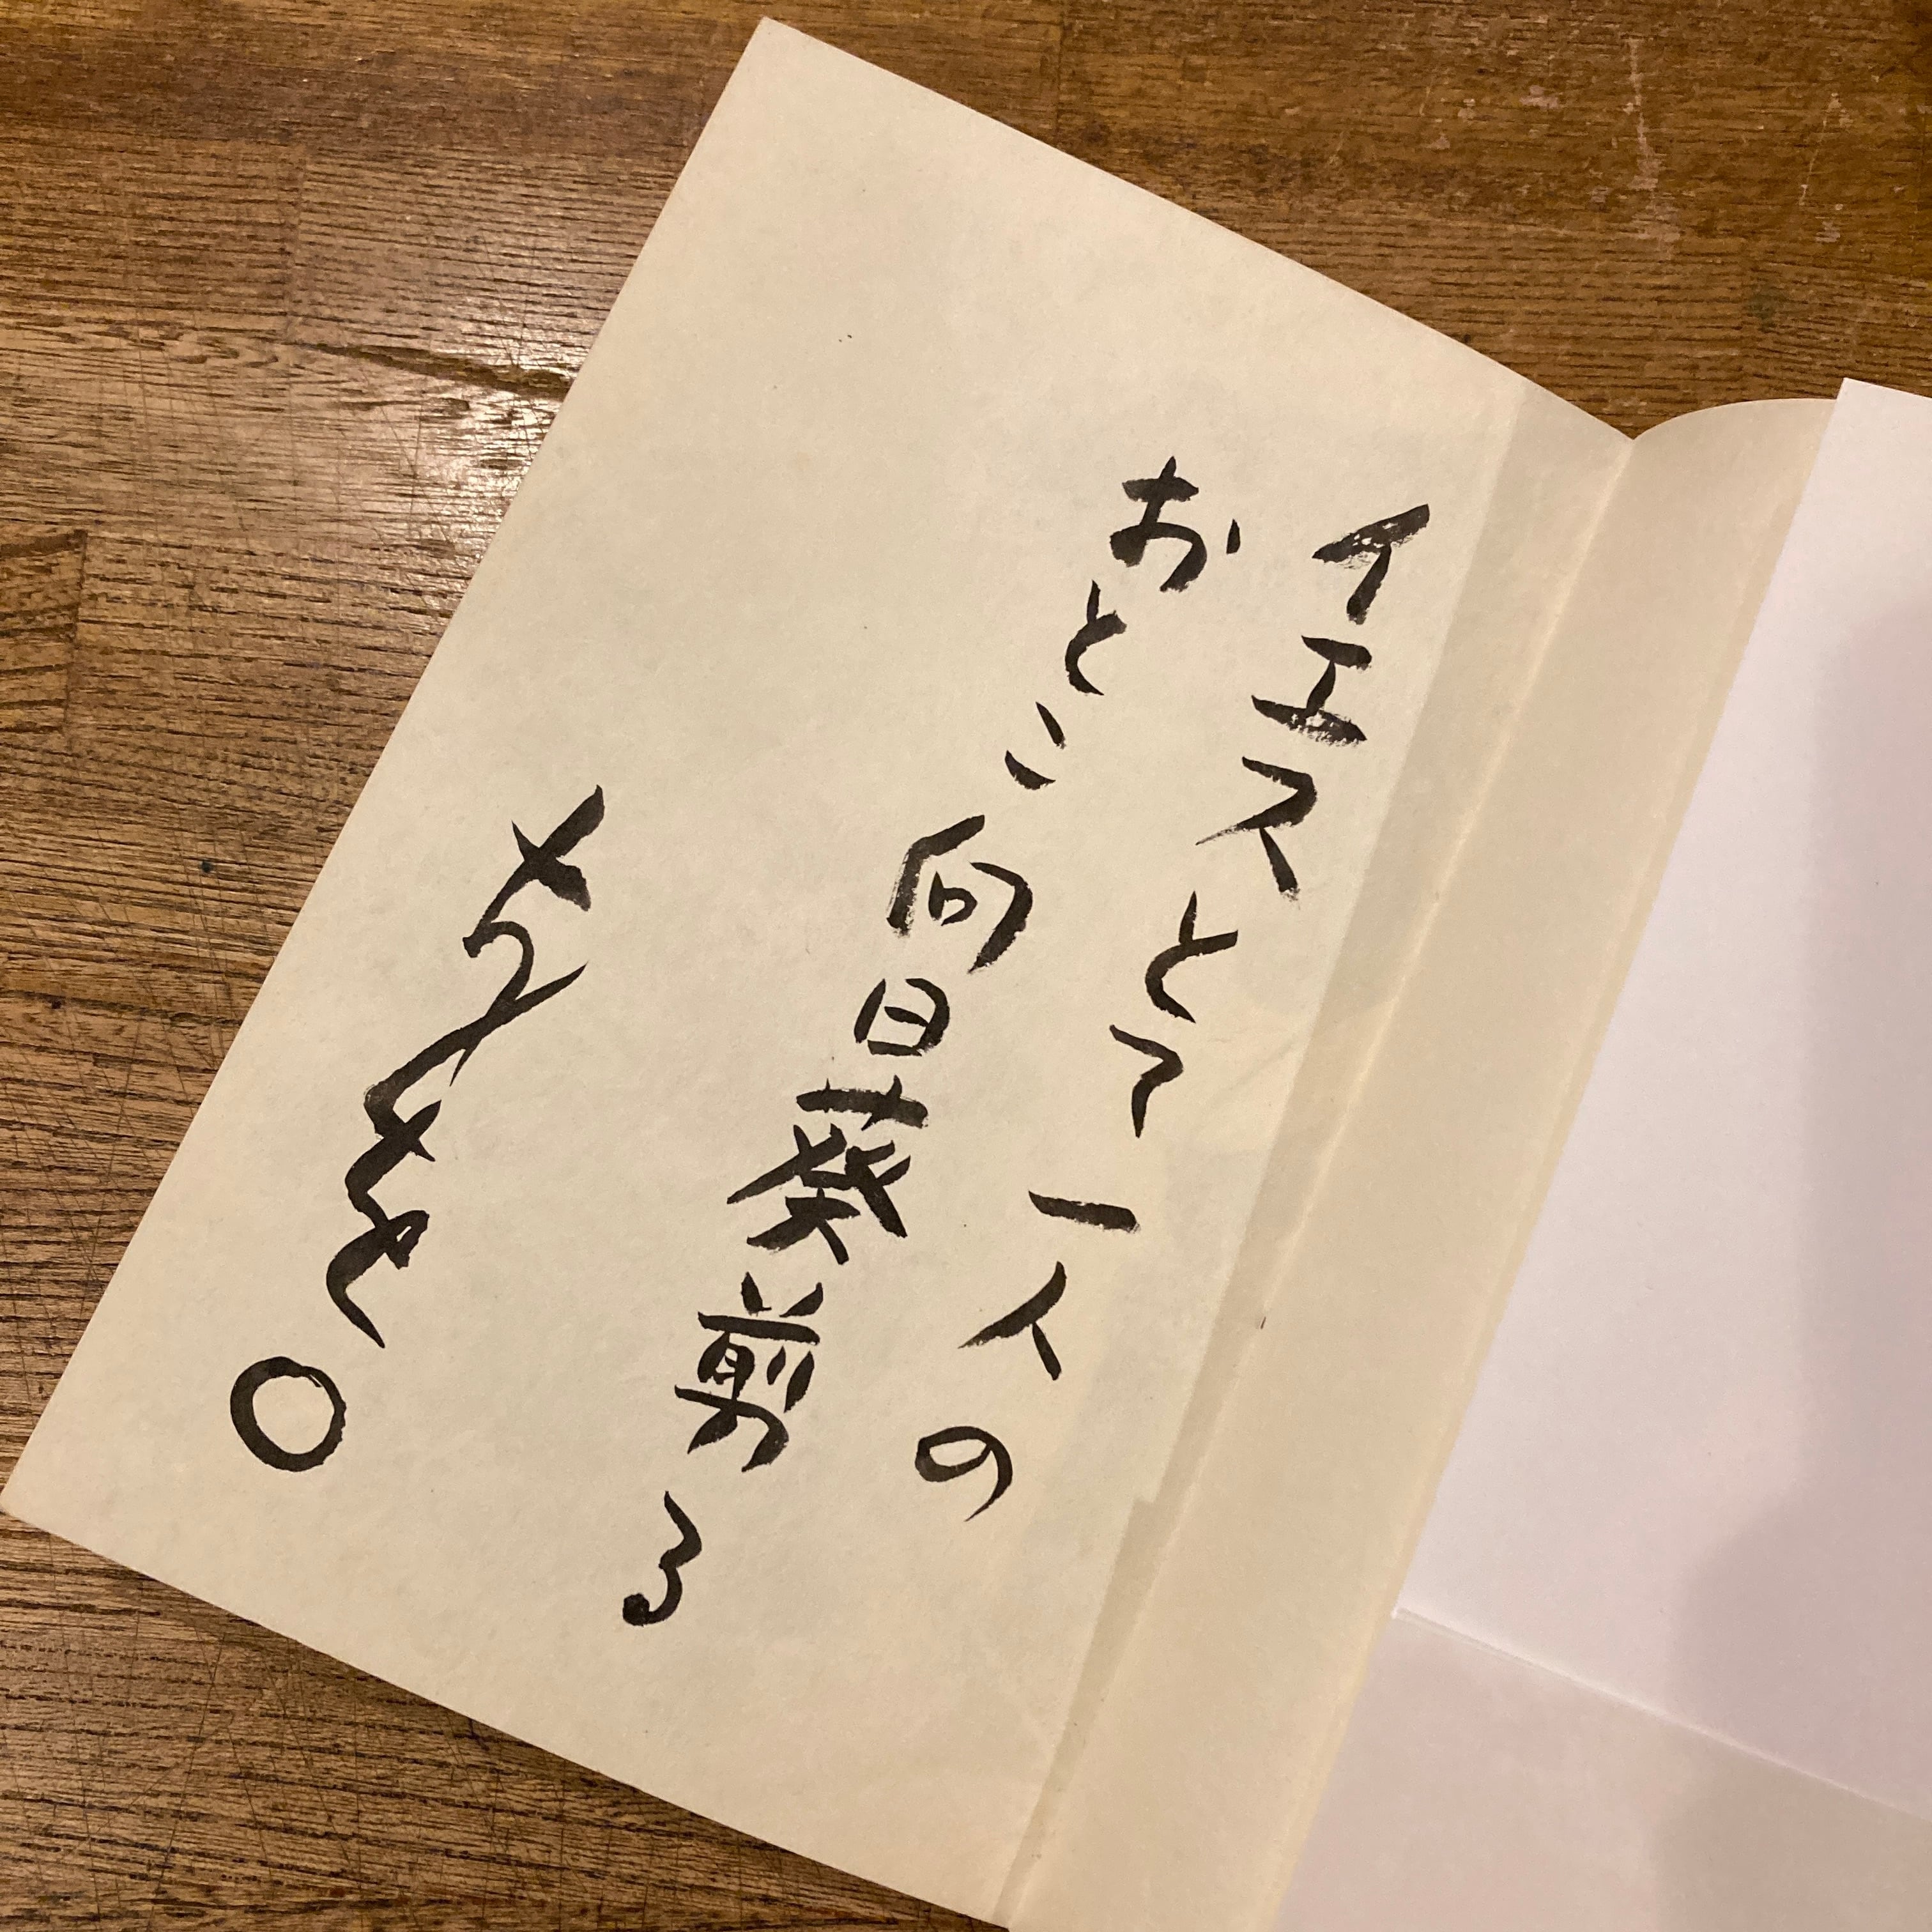 イエスとて一人の
おとこ向日葵剪る